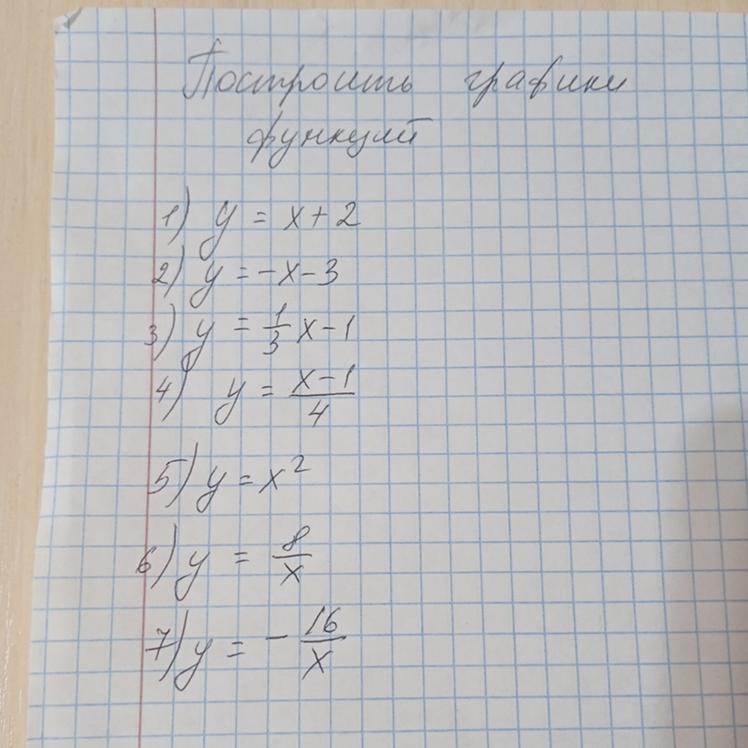 Построить графики
функций
1) y = x + 2
2) y = -x - 3
3) y = 1/3 x - 1
4) y = (x - 1)/4
5) y = x²
6) y = 8/x
7) y = - 16/x